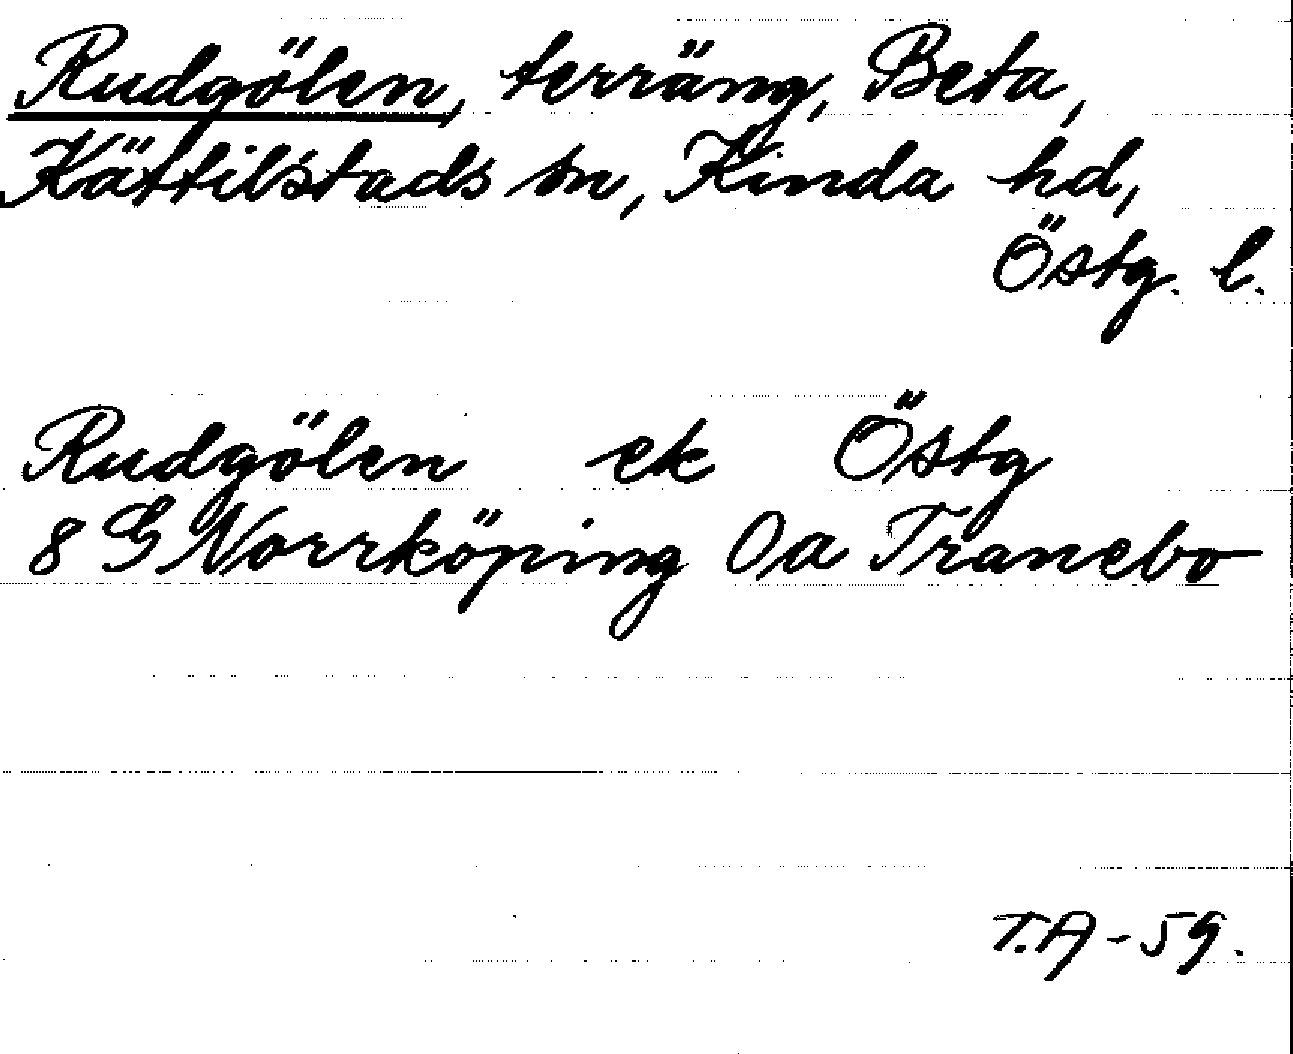 Rudgölen, terräng, Beta,
Kättilstads sn, Kinda hd,
Östg. l.
Rudgölen ek Östg
8 G Norrköping 0a Tranebo
T.A - 59.